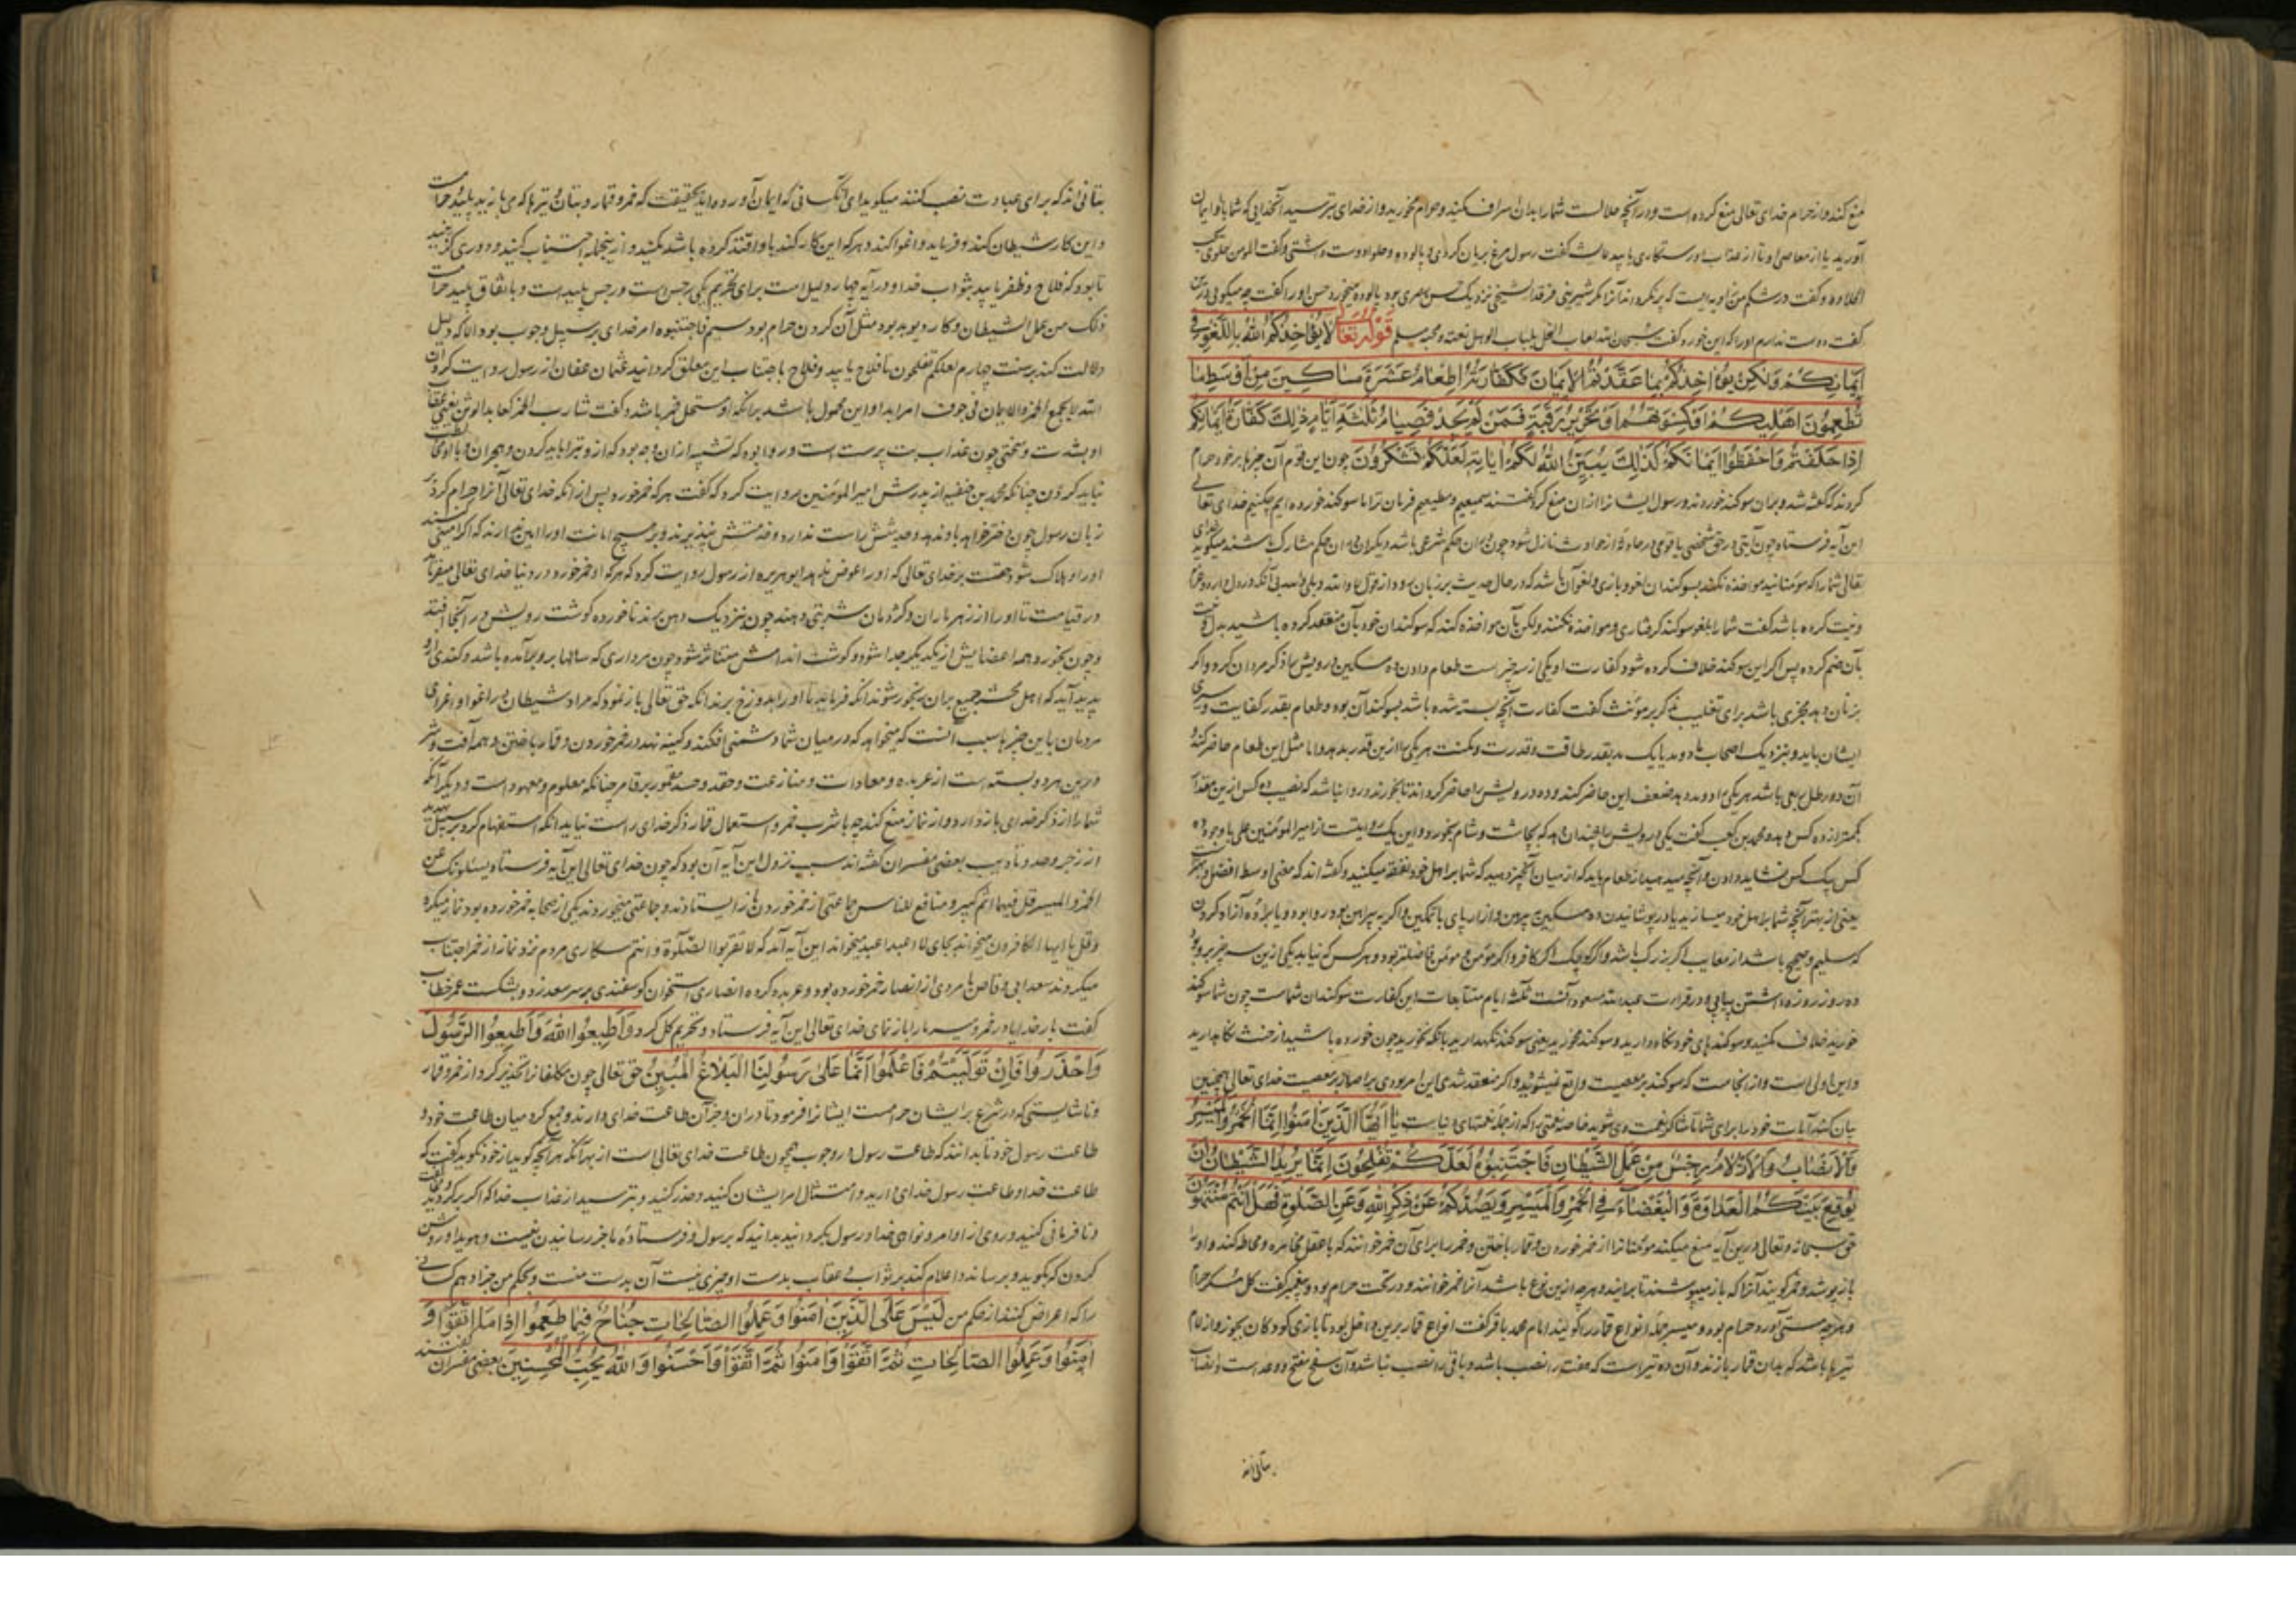 منع کنند و از حرام خدای تعالی منع کرده است و در آنچه حلالست شما را بدان اسراف مکنید و حرام مخورید و از خدای بترسید آنخدایی که شما باو ایمان
آورید یا از معاصی او تا از عذاب او رستکاری یابید عایشه گفت رسول مرغ بریان کردی و پالوده و حلوا دوست داشتی و گفت المومن حلوی یحب
الحلاوة و گفت در شکم مؤمن زاویه ایست که پر نکرداند آنرا مکر شیرینی فرقد السبخی نزدیک حسن بصری بود پالوده میخورد حسن او را گفت چه میگویی درین
گفت دوست ندارم او را که این خورد گفت سبحان الله لعاب النحل بلباب البر هل یعیبه مسلم قوله تعالی لَا يُؤَاخِذُكُمُ اللهُ بِاللَّغْوِ فِي
أَيْمَانِكُمْ وَلَكِنْ يُؤَاخِذُكُمْ بِمَا عَقَّدْتُمُ الْأَيْمَانَ فَكَفَّارَتُهُ إِطْعَامُ عَشَرَةِ مَسَاكِينَ مِنْ أَوْسَطِ مَا
تُطْعِمُونَ أَهْلِيكُمْ أَوْ كِسْوَتُهُمْ أَوْ تَحْرِيرُ رَقَبَةٍ فَمَنْ لَمْ يَجِدْ فَصِيَامُ ثَلَثَةِ أَيَّامٍ ذَلِكَ كَفَّارَةُ أَيْمَانِكُمْ
إِذَا حَلَفْتُمْ وَاحْفَظُوا أَيْمَانَكُمْ كَذَلِكَ يُبَيِّنُ اللهُ لَكُمْ آيَاتِهِ لَعَلَّكُمْ تَشْكُرُونَ چون این قوم آن چیزها بر خود حرام
کردند که گفته شد و بران سوکند خوردند و رسول ایشانرا ازان منع کرد گفتند سمیعیم و مطیعیم فرمان ترا اما سوکند خورده ایم چکنیم خدای تعالی
این آیه فرستاد چون آیتی در حق شخصی یا قومی در حادثه از حوادث نازل شود چون دران حکم شرعی باشد دیکران دران حکم مشارک باشند میگوید خدای
تعالی شما را که مؤمنانید مواخذه نکند بسوکندان لغو و بازی و لغو آن باشد که در حال حدیث بر زبان رود از قول لا والله و بلی والله بی آنکه در دل دارد
و نیت کرده باشد گفت شما را بلغو سوکند گرفتاری و مواخذه نکنند ولکن بآن مواخذه کنند که سوکندان خود بآن منعقد کرده باشید بدل و نیت
بآن ضم کرده پس اگر این سوکند خلاف کرده شود کفارت او یکی از سه چیز است طعام دادن ده مسکین و درویش را ذکر مردان کرد و اگر
بزنان دهد مجزی باشد برای تغلیب ذکر بر مؤنث گفت کفارت آنچه بسته شده باشد بسوکند آن بود و طعام بقدر کفایت و سیری
ایشان باید و بنزدیک اصحاب ما دو مد یا یک مد بقدر طاقت و قدرت و مکنت هر یکی را ازین قدر بدهد و اما مثل این طعام حاضر کند و
آن دو رطل و ربعی باشد هر یکی را و دو مد بدهد ضعف این حاضر کند و ده درویش را حاضر گرداند تا بخورند و روا نباشد که نصیب ده کس ازین مقدار
بکمتر از ده کس دهد و محمد بن کعب گفت یکی درویش را چندان دهد که بچاشت و شام بخورد و این یک روایتست از امیر المؤمنین علی با وجود ده
کس بیک کس نشاید دادن و آنچه میدهید از طعام باید که از میان آنچیز دهید که شما بر اهل خود نفقه میکنید و گفته اند که معنی اوسط افضل و بهتر
یعنی از بهتر آنچه شما بر اهل خود میسازید یا در پوشانیدن ده مسکین پیرهن و ازار پای با تمکین و اگر به پیراهن بود روا بود و یا برده آزاد کردن
که سلیم و صحیح باشد از معایب اگر بزرگ باشد و اگر کوچک اگر کافر و اگر مؤمن و مؤمن فاضلتر بود و هر کس که نیابد یکی ازین سه چیز برو بود
ده روز روزه داشتن پیاپی و در قراءت عبد الله مسعود آنست ثلثة ایام متتابعات این کفارت سوکندان شماست چون شما سوکند
خورید خلاف مکنید و سوکندهای خود نگاه دارید و سوکند مخورید یعنی سوکند نگهدارید بآنکه نخورید چون خورده باشید از حنث نگاه دارید
و این اولی است و از اینجاست که سوکند بر معصیت واقع نمیشود و اگر منعقد شدی این امر بودی بر اصرار بر معصیت خدای تعالی همچنین
بیان کند آیات خود را برای شما تا شاکر نعمت وی شوید خاصه نعمتی را که از جمله نعمتهای دنیاست يَا أَيُّهَا الَّذِينَ آمَنُوا إِنَّمَا الْخَمْرُ وَالْمَيْسِرُ
وَالْأَنْصَابُ وَالْأَزْلَامُ رِجْسٌ مِنْ عَمَلِ الشَّيْطَانِ فَاجْتَنِبُوهُ لَعَلَّكُمْ تُفْلِحُونَ إِنَّمَا يُرِيدُ الشَّيْطَانُ أَنْ
يُوقِعَ بَيْنَكُمُ الْعَدَاوَةَ وَالْبَغْضَاءَ فِي الْخَمْرِ وَالْمَيْسِرِ وَيَصُدَّكُمْ عَنْ ذِكْرِ اللهِ وَعَنِ الصَّلَوةِ فَهَلْ أَنْتُمْ مُنْتَهُونَ
حق سبحانه و تعالی درین آیه منع میکند مؤمنانرا از خمر خوردن و قمار باختن و خمر را برای آن خمر خوانند که با عقل مخامره و مخالطه کند و او را
باز پوشد و خمر گویند آنرا که باز میپوشند تا برآیند و هر چه ازین نوع باشد آنرا خمر خوانند و در تحت حرام بود و پیغمبر گفت کل مسکر حرام
و هر چه مستی آورد حرام بود و میسر جمله انواع قمار را گویند امام محمد باقر گفت انواع قمار برین داخل بود تا بازی کودکان بجوز و ازلام
تیرها باشد که بدان قمار بازند و آن ده تیر است که هفت را نصب باشد و باقی را نصب نباشد و آن سفح منح و وغد است و انصاب
بتانی اند
بتانی اند که برای عبادت نصب کنند میگوید ای آنکسانی که ایمان آورده اید بحقیقت که خمر و قمار و بتان و تیرها که می بازید پلید است
و این کار شیطان کند و فرماید و اغوا کند و هر که این کار کند باو اقتدا کرده باشد مکنید و از ینجمله اجتناب کنید و دوری گزینید
تا بود که فلاح و ظفر یابید بثواب خدا و در آیه چهار دلیل است برای تحریم یکی رجس است و رجس پلید است و باتفاق پلید حرامست
ذلک من عمل الشیطان و کار دیو بد بود مثل آن کردن حرام بود سیم فاجتنبوه امر خدای بر سبیل وجوب بود الا آنکه دلیل
دلالت کند بر سنت چهارم لعلکم تفلحون تا فلاح یابید و فلاح باجتناب این معلق گردانید عثمان عفان از رسول روایت کرد که آن
الله لا یجمع الخمر و الایمان فی جوف امرء ابدا و این محمول باشد برانکه او مستحل خمر باشد و گفت شارب الخمر کعابد الوثن یعنی عقاب
او بشدت و سختی چون عذاب بت پرست است و روا بود که تشبیه ازان وجه بود که ازو تبرا باید کردن و هجران و باو مخالطت
نباید کردن چنانکه محمد بن حنفیه از پدرش امیر المؤمنین روایت کرد که گفت هر که خمر خورد پس از انکه خدای تعالی آنرا حرام کرد بر
زبان رسول چون دختر خواهد باو ندهند و حدیثش راست ندارد و شفاعتش نپذیرند و بر هیچ امانت او را امین ندارند که اگر امینش
او را و هلاک شود حقست بر خدای تعالی که او را عوض ندهد ابو هریره از رسول روایت کرد که هر که او خمر خورد در دنیا خدای تعالی میفرماید
در قیامت تا او را از زهر ماران و کژدمان شربتی دهند چون نزدیک دهن برند ناخورده گوشت رویش در آنجا افتد
و چون بخورد همه اعضایش از یکدیگر جدا شود و گوشت اندامش متناثر شود چون مرداری که سالها برو برآمده باشد و گندی ازو
پدید آید که اهل محشر جمیع بدان رنجور شوند آنکه فرماید تا او را بدوزخ برند آنکه حق تعالی باز نمود که مراد شیطان در اغوا و اغرای
مردمان باین چیزها سبب آنست که میخواهد که در میان شما دشمنی افکند و کینه نهد در خمر خوردن و قمار باختن و همه آفت و شر
درین هر دو بسته است از عربده و معادات و منازعت و حقد و حسد مقمور بر قامر چنانکه معلوم و معهود است و دیگر آنکه
شما را از ذکر خدای باز دارد و از نماز منع کند چه با شرب خمر و استعمال قمار ذکر خدای راست نیاید آنکه استفهام کرد بر سبیل تهدید
از زجر و صد و تأدیب بعضی مفسران گفته اند سبب نزول این آیه آن بود که چون خدای تعالی این آیه فرستاد یسئلونک عن
الخمر و المیسر قل فیهما اثم کبیر و منافع للناس جماعتی از خمر خوردن باز ایستادند و جماعتی میخوردند یکی از صحابه خمر خورده بود نماز میکرد
و قل یا ایها الکافرون میخواند بجای لا اعبد اعبد میخواند این آیه آمد که لا تقربوا الصلوة و انتم سکاری مردم نزد نماز از خمر اجتناب
میکردند سعد ابی وقاص با مردی از انصار خمر خورده بود و عربده کرده انصاری استخوان گوسفندی بر سر سعد زد و بشکست عمر خطاب
گفت بار خدایا در خمر و میسر ما را بیان نمای خدای تعالی این آیه فرستاد و تحریم کل کرد وَأَطِيعُوا اللهَ وَأَطِيعُوا الرَّسُولَ
وَاحْذَرُوا فَإِنْ تَوَلَّيْتُمْ فَاعْلَمُوا أَنَّمَا عَلَى رَسُولِنَا الْبَلَاغُ الْمُبِينُ حق تعالی چون مکلفانرا تحذیر کرد از خمر و قمار
و ناشایستی که در شرع بر ایشان حرامست ایشانرا فرمود تا دران و جز آن طاعت خدای دارند و جمع کرد میان طاعت خود و
طاعت رسول خود تا بدانند که طاعت رسول در وجوب همچون طاعت خدای تعالی است از بهر آنکه هر آنچه گوید از خود نگوید گفت که
طاعت خدا و طاعت رسول خدای دارید و امتثال امر ایشان کنید و حذر کنید و بترسید از عذاب خدا که اگر برگردید
و نافرمانی کنید و روی از اوامر و نواهی خدا و رسول بگردانید بدانید که بر رسول و فرستاده ما جز رسانیدن نیست و هویدا و روشن
کردن که بگوید و برساند و اعلام کند بر ثواب و عقاب بدست او چیزی نیست آن بدست منست و بحکم من جزا دهم کسانی
را که اعراض کنند از حکم من لَيْسَ عَلَى الَّذِينَ آمَنُوا وَعَمِلُوا الصَّالِحَاتِ جُنَاحٌ فِيمَا طَعِمُوا إِذَا مَا اتَّقَوْا وَ
آمَنُوا وَعَمِلُوا الصَّالِحَاتِ ثُمَّ اتَّقَوْا وَآمَنُوا ثُمَّ اتَّقَوْا وَأَحْسَنُوا وَاللهُ يُحِبُّ الْمُحْسِنِينَ بعضی مفسران گفتند